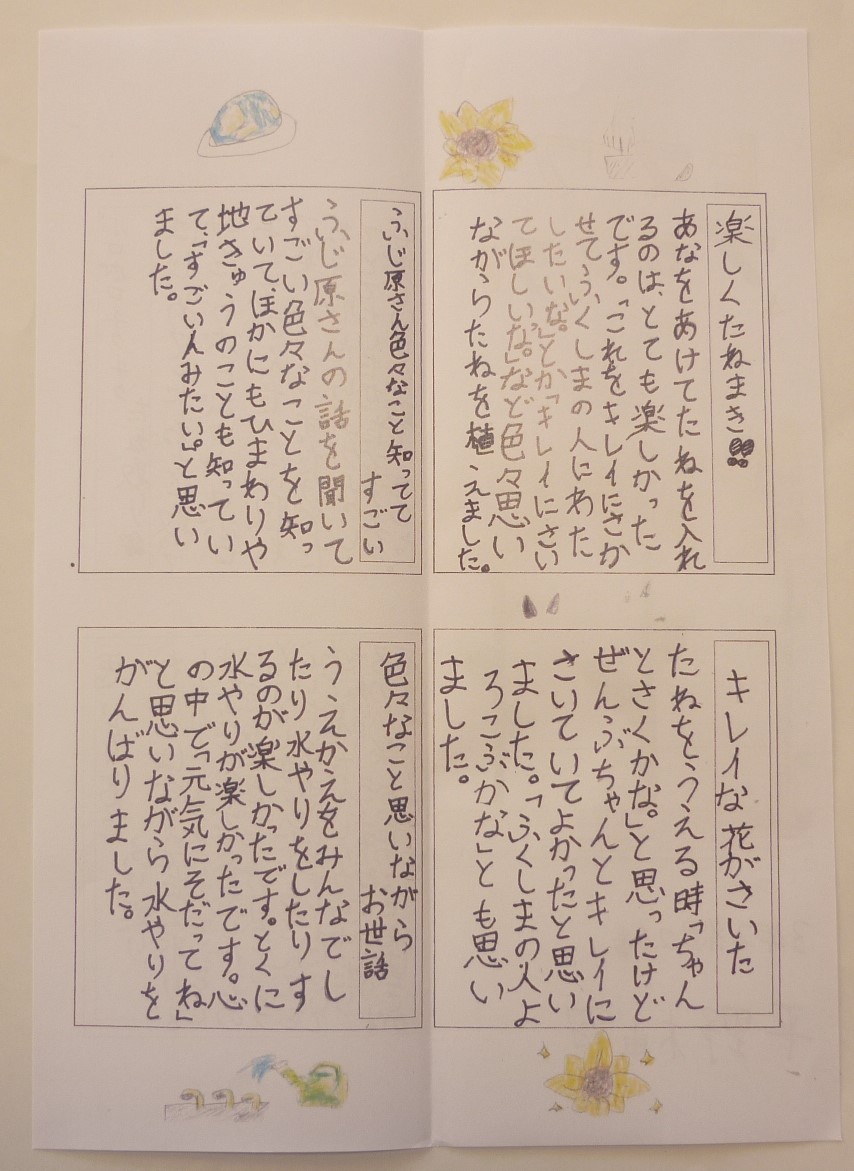 楽しくたねまき!!
あなをあけてたねを入れ
るのは、とても楽しかった
です。「これをキレイにさか
せてふくしまの人にわた
したいな。」とか「キレイにさい
てほしいな。」など色々思い
ながらたねを植えました。
ふじ原さん色々なこと知ってて
すごい
ふじ原さんの話を聞いて
すごい色々なことを知っ
ていて、ほかにもひまわりや
地きゅうのことも知ってい
て、「すごいんみたい。」と思い
ました。
キレイな花がさいた
たねをうえる時「ちゃん
とさくかな。」と思ったけど
ぜんぶちゃんとキレイに
さいていてよかったと思い
ました。「ふくしまの人よ
ろこぶかな」とも思い
ました。
色々なこと思いながら
お世話
うえかえをみんなでし
たり水やりをしたりす
るのが楽しかったです。とくに
水やりが楽しかったです。心
の中で「元気にそだってね」
と思いながら水やりを
がんばりました。